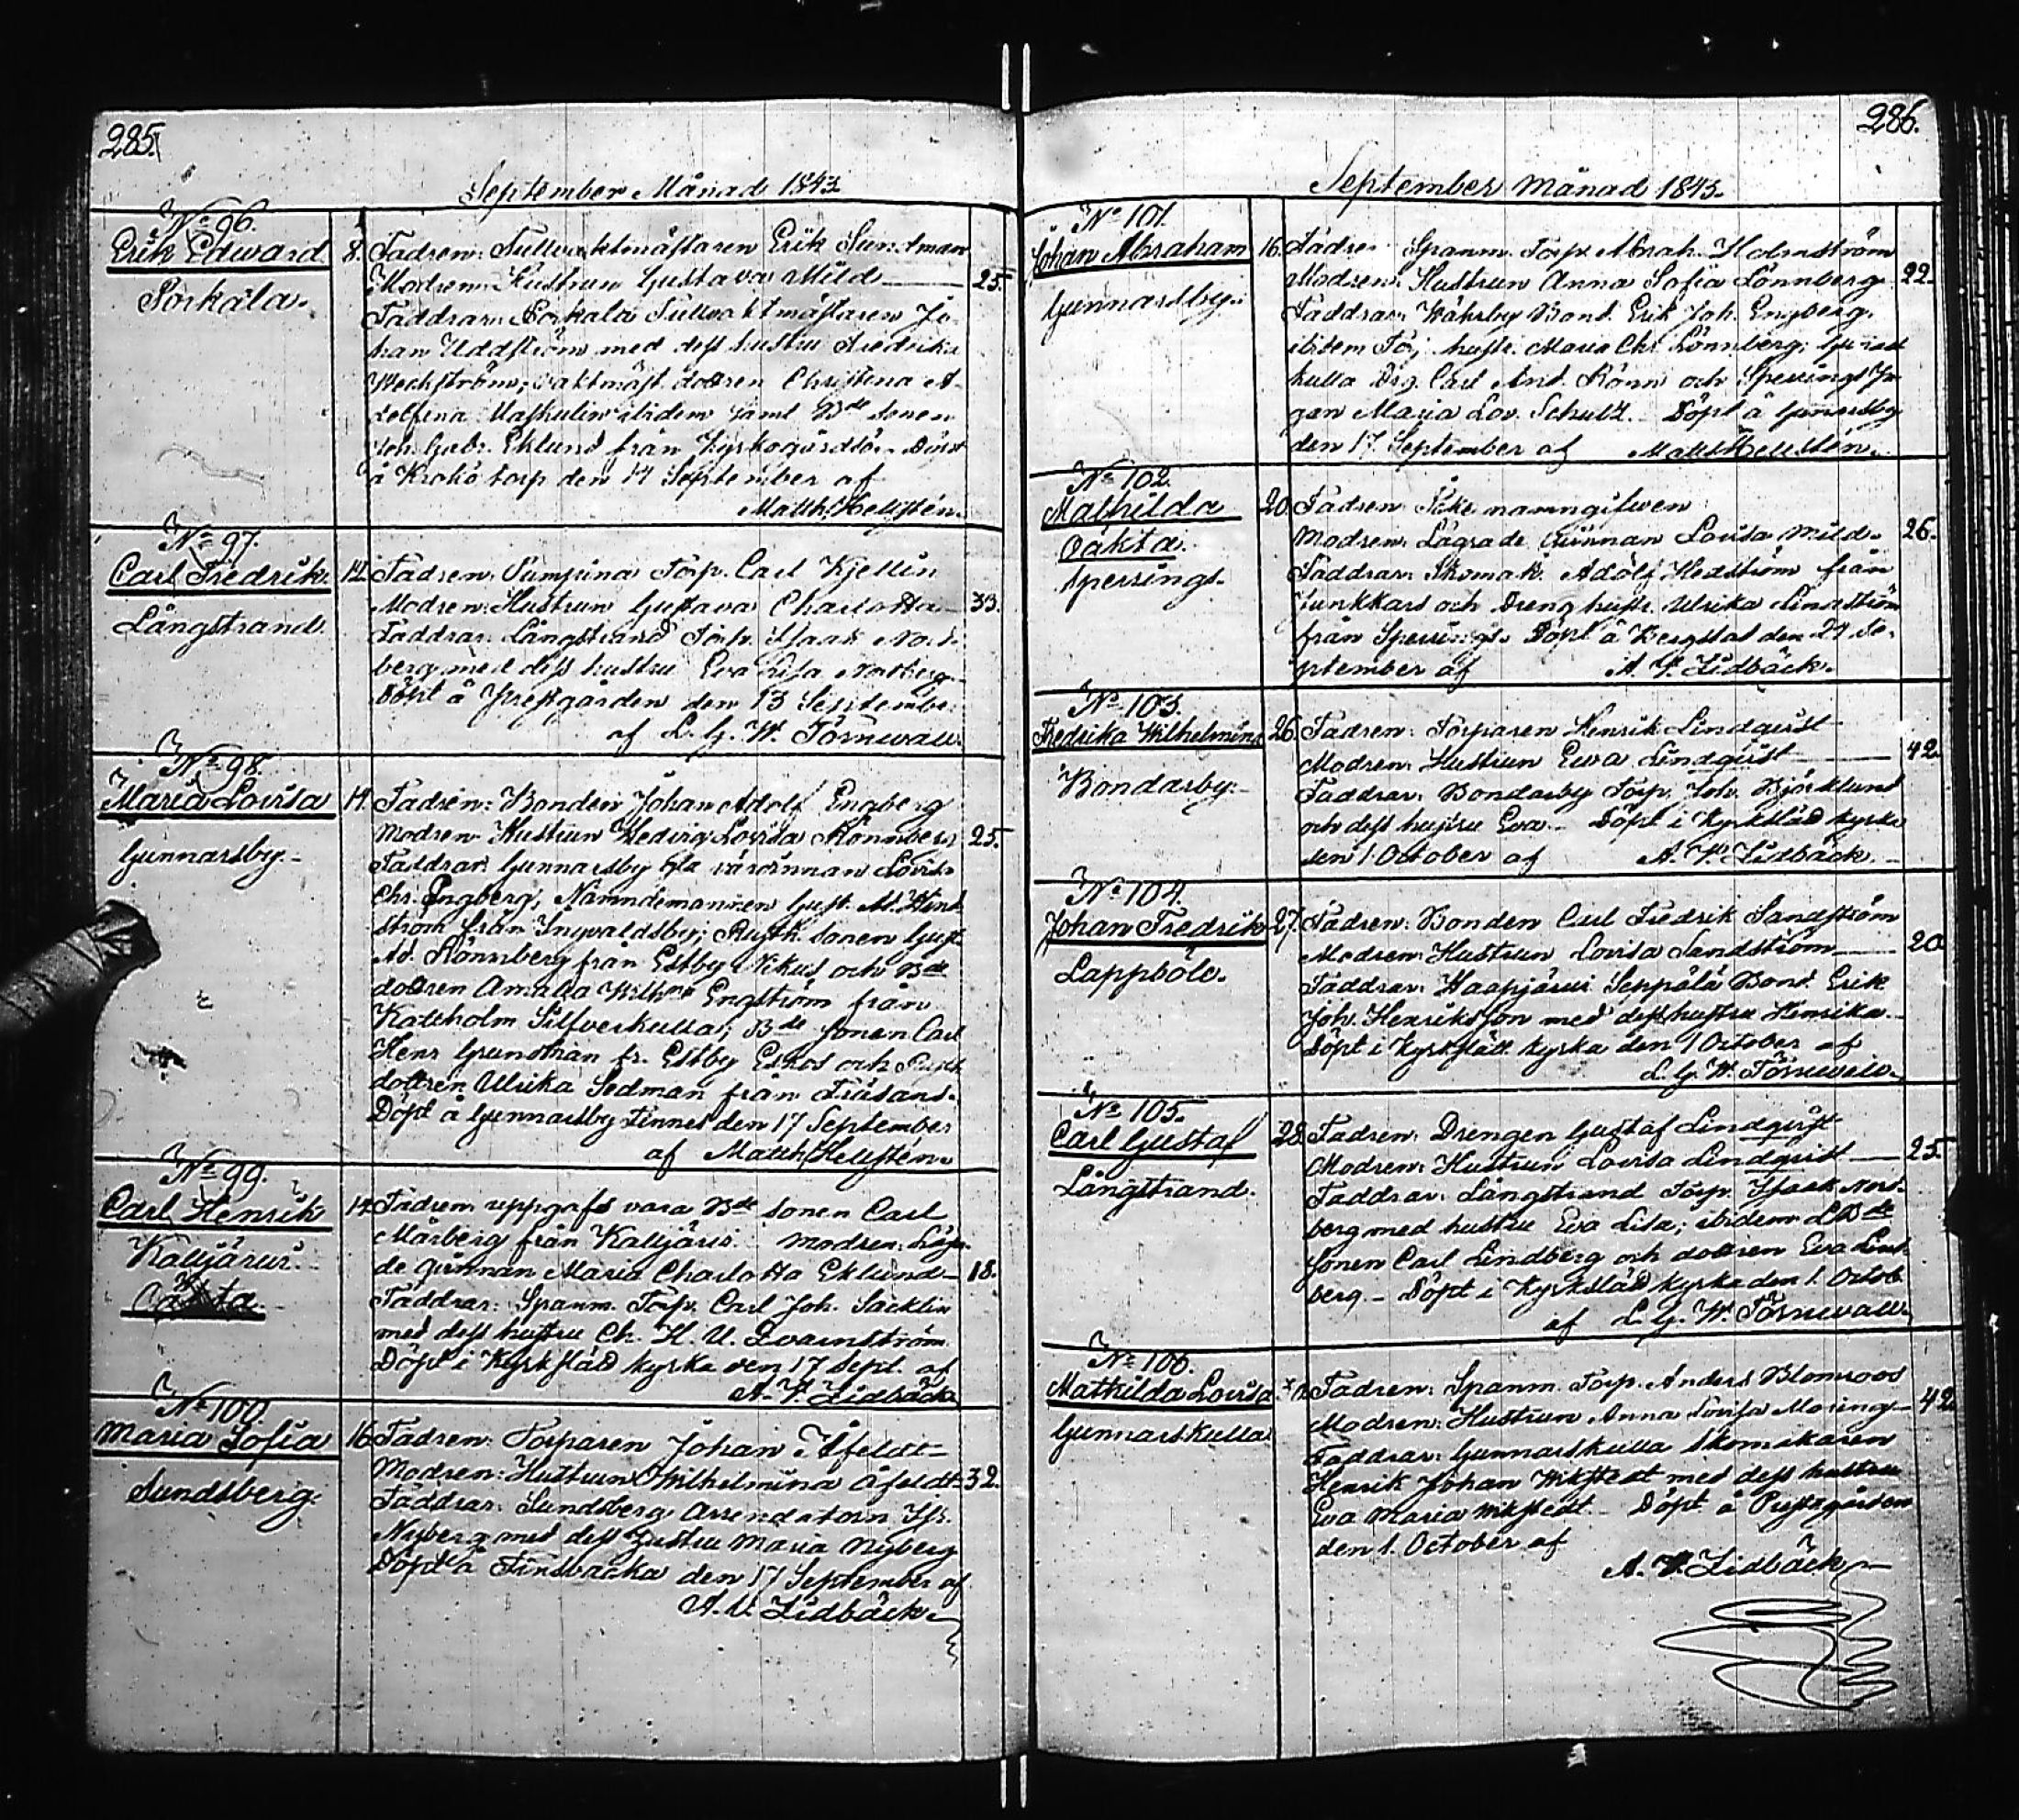 285.
September Månad 1843
No 96.
Erik Edward
Porkala.
8. Fadren: Tullvaktmästaren Erik Sundman
Modren: Hustrun Gustava Mild 25.
Faddrar: Porkala Tullvaktmästaren Jo-
han Uddström med dess hustru Fredrika
Weckström; vaktmäst. dottren Christina A-
delfina ibidem samt Bde sonen
Joh. Gabr. Eklund från Kyrkogårdsö. Döpt
å Krokö torp den 14 September af
Matth. Hellstén.
No 97.
Carl Fredrik.
Långstrand.
12. Fadren: Torp. Carl Kjellin
Modren: Hustrun Gustava Charlotta 33.
Faddrar: Långstrand Torp. Isaak Nord-
berg med dess hustru Eva Lisa Nordberg
Döpt å Prestgården den 13 September
af L. G. W. Törnevall.
No 98.
Maria Lovisa
Gunnarsby.
14. Fadren: Bonden Johan Adolf Engberg
Modren: Hustrun Hedvig Lovisa Rönnberg 25.
Faddrar: Gunnarsby gla värdinnan Lovisa
Chr. Engberg, Nämndemannen Gust. Ad. Lind-
ström från Ingvaldsby; Rustk. sonen Gust.
Ad. Rönnberg från Estby Nikus och Bde
dottren Amalia Wilhna Engström från
Kallholm Silfverkulla; Bde sonen Carl
Henr Grundman fr. Estby Eskos och Rustk
dottren Ulrika Sedman från Fräsans.
Döpt å Gunnarsby Finnes den 17 September
af Matth. Hellstén.
No 99.
Carl Henrik
Kalljärvi.
14. Fadren uppgafs vara Bde sonen Carl
Mårberg från Kalljärvi. Modren: Läg-
de qvinnan Maria Charlotta Eklund 18.
Faddrar: Spanm. Torp. Carl Joh. Sacklin
med dess hustru Ch. H. U. Qvarnström.
Döpt i Kyrkslätt kyrka den 17 Sept. af
A. V. Lidbäck
No 100.
Maria Sofia
Sundsberg.
16. Fadren: Torparen Johan Åfeldt
Modren: Hustrun Wilhelmina Åfeldt 32.
Faddrar: Sundsberg Arrendatorn
Nyberg med dess hustru Maria Nyberg
Döpt å Finsbacka den 17 September af
A. V. Lidbäck.
286.
September Månad 1843.
No 101.
Johan Abraham
Gunnarsby.
16. Fadren Spanm. Torp. Abrah. Holmström
Modren: Hustrun Anna Sofia Lönnberg 22.
Faddrar: Wåhrby Bond. Erik Joh. Engberg.
ibidem Torp. hustr. Maria Chr Lönnberg;
kulla Drg. Carl And. Rönn och Sperrings Pi-
gan Maria Lov. Schultz. Döpt å Gunnarsby
den 17 September af Matth. Hellstén.
No 102.
Mathilda
Oäkta.
Sperrings.
20. Fadren: Icke namngifven
Modren: Lägrade qvinnan Lovisa Mild. 26.
Faddrar: Skomak. Adolf Hedström från
Junkkars och Dreng hustr. Ulrika Lindström
från Sperrings. Döpt å Bergstad den 24 Se-
ptember af A. V. Lidbäck.
No 103.
Fredrika Wilhelmina
Bondarby.
26. Fadren: Torparen Henrik Lindqvist
Modren: Hustrun Eva Lindqvist 42.
Faddrar: Bondarby Torp. Joh. Björklund
och dess hustru Eva. Döpt i Kyrkslätt kyrka
den 1 October af A. V. Lidbäck.
No 104.
Johan Fredrik
Lappböle.
27. Fadren: Bonden Carl Fredrik Sandström
Modren: Hustrun Lovisa Sandström 20
Faddrar: Haapjärvi Seppälä Bond. Erik
Joh. Henriksson med dess hustru Henrika.
Döpt i Kyrkslätt kyrka den 1 October af
L. G. W. Törnevall.
No 105.
Carl Gustaf
Långstrand.
28. Fadren: Drengen Gustaf Lindqvist
Modren: Hustrun Lovisa Lindqvist 25.
Faddrar: Långstrand Torp. Isaak Nord-
berg med hustru Eva Lisa; ibidem Bde
sonen Carl Lindberg och dottren Eva Lind-
berg. Döpt i Kyrkslätt kyrka den 1. Octob.
af L. G. W. Törnevall.
No 106.
Mathilda Lovisa
Gunnarskulla
Fadren: Spanm. Torp. Anders Blomroos
Modren: Hustrun Anna Lovisa Moring 42
Faddrar: Gunnarskulla skomakaren
Henrik Johan Wikstedt med dess hustru
Eva Maria Wikstedt. Döpt å Prestgården
den 1. October af
A. V. Lidbäck